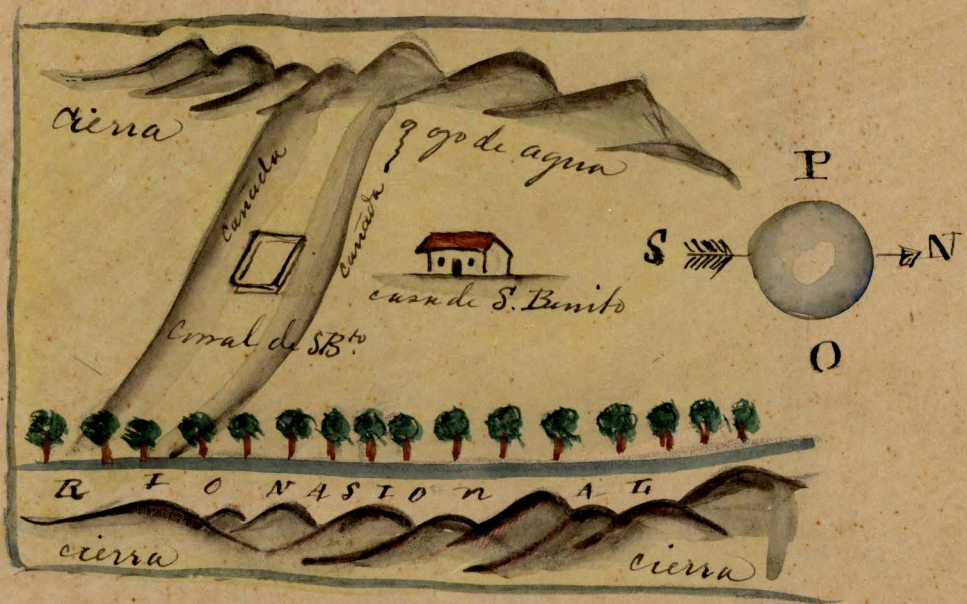 cierra
cañada
cañada
ojo de agua
P
S
N
O
casa de S. Benito
Corral de S Bto.
RIO NASIONAL
cierra
cierra